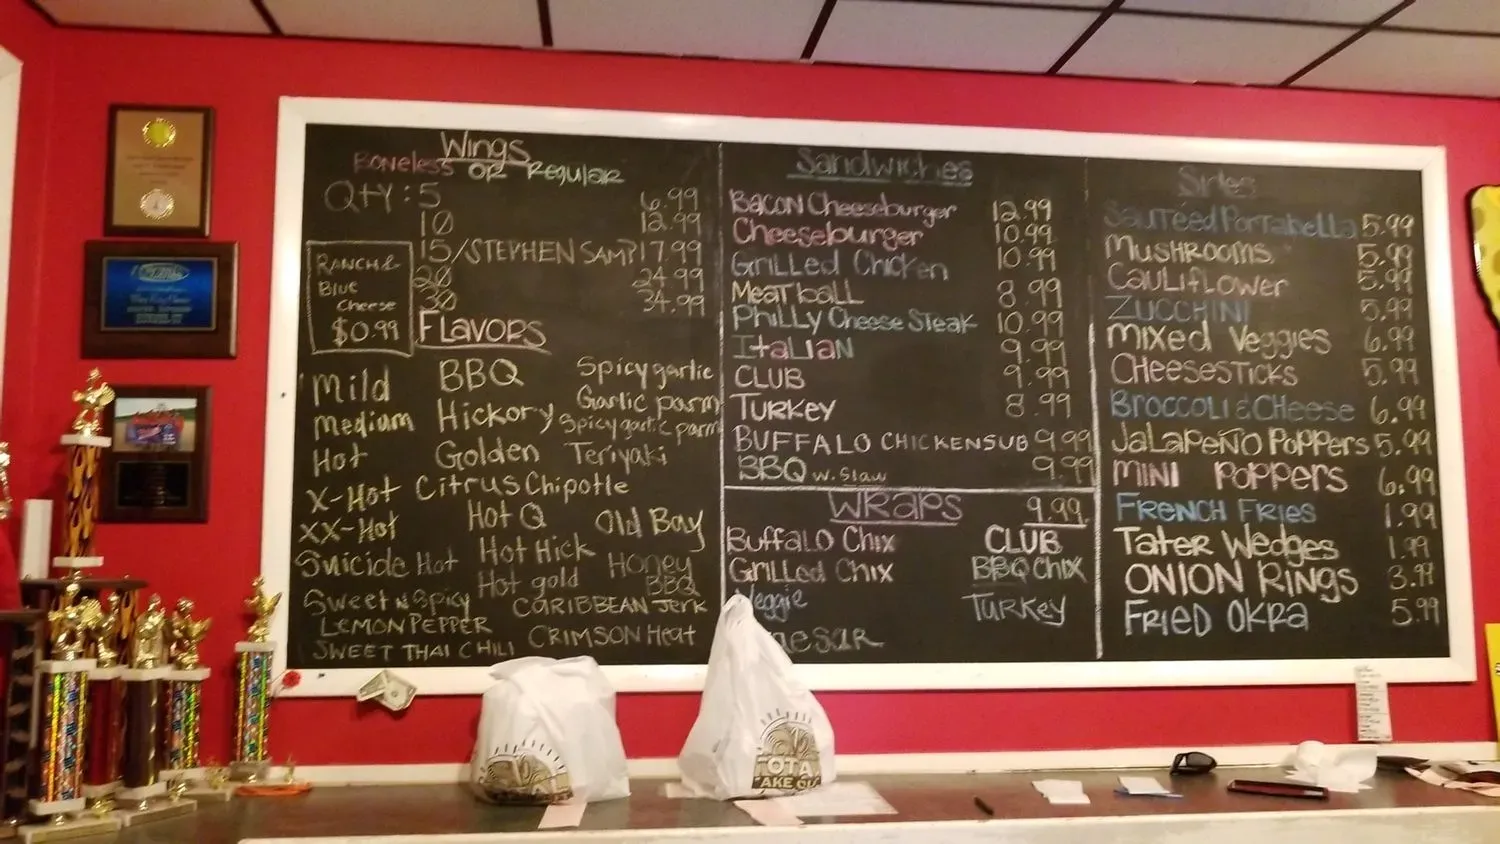 Wings
Boneless or Regular
QTY: 5 6.99
10 12.99
15/STEPHEN SAMP 17.99
20 24.99
30 34.99
RANCH &
Blue
Cheese
$0.99
Flavors
Mild BBQ Spicy garlic
Garlic parm
Medium Hickory Spicy garlic parm
Hot Golden Teriyaki
X-Hot Citrus Chipotle
XX-Hot Hot Q Old Bay
Suicide Hot Hot Hick Honey
BBQ
Sweet N Spicy Hot gold CARIBBEAN Jerk
LEMON PEPPER
SWEET THAI CHILI CRIMSON Heat
Sandwiches
Bacon Cheeseburger 12.99
Cheeseburger 10.99
Grilled Chicken 10.99
Meatball 8.99
Philly Cheese Steak 10.99
Italian 9.99
CLUB 9.99
TURKEY 8.99
BUFFALO CHICKEN SUB 9.99
BBQ w. Slaw 9.99
WRAPS 9.99
Buffalo Chix CLUB
Grilled Chix BBQ Chix
Veggie Turkey
aesar
Sides
Sauteed Portabella 5.99
Mushrooms 5.99
Cauliflower 5.99
Zucchini 5.99
Mixed Veggies 6.99
Cheesesticks 5.99
Broccoli & Cheese 6.99
Jalapeño Poppers 5.99
Mini Poppers 6.99
French Fries 1.99
Tater Wedges 1.99
Onion Rings 3.99
Fried Okra 5.99
OTA
AKE OU